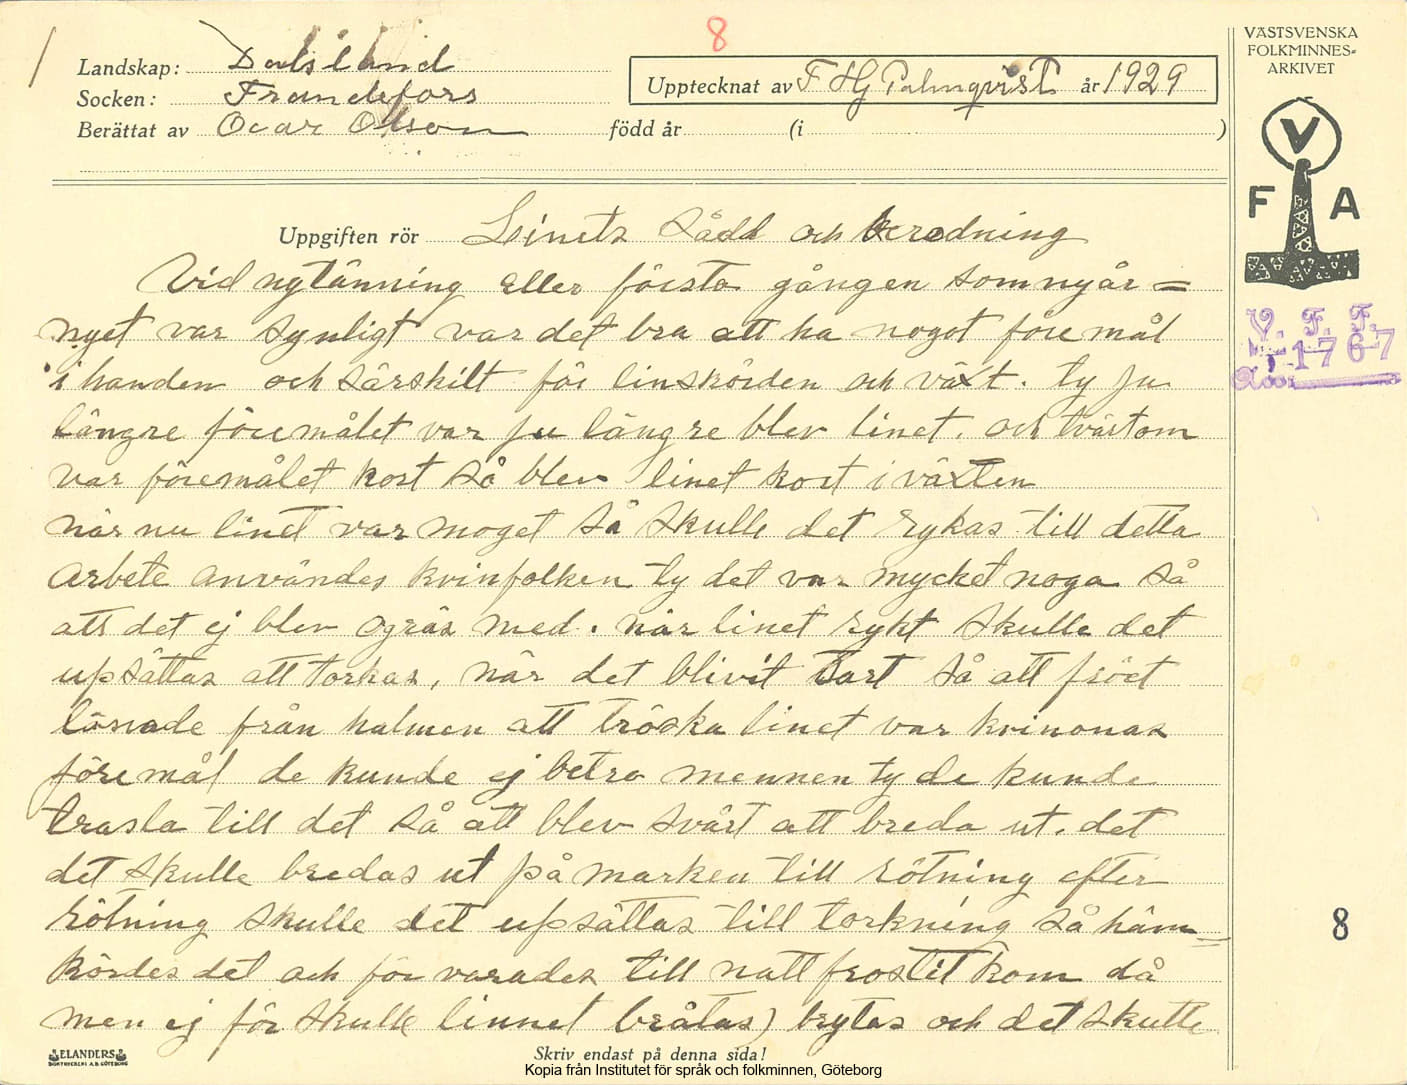 8
VÄSTSVENSKA
FOLKMINNES-
ARKIVET
Landskap: Dalsland
Socken: Frändefors
Upptecknat av F HG Palmqvist år 1929
Berättat av Ocar Olson född år (i )
V
F A
Uppgiften rör Linets Sådd och beredning
Vid nytänning eller första gången som nyår=
nyet var synligt var det bra att ha nogot föremål
i handen och särskilt för linskörden och växt. ty ju
längre föremålet var ju längre blev linet. och tvärtom
var föremålet kort så blev linet kort i växten
när nu linet var moget så skulle det rykas till detta
arbete användes kvinfolken ty det var mycket noga så
att det ej blev ogräs med. när linet rykt skulle det
upsättas att torkas, när det blivit tort så att fröet
lösnade från halmen att tröska linet var kvinonas
föremål de kunde ej betro mennen ty de kunde
trasla till det så att blev svårt att breda ut. det
det skulle bredas ut på marken till rötning efter
rötning skulle det upsättas till torkning så häm=
kördes det och förvarades till nattfrostit kom då
men ej för skulle linnet bråtas) brytas och det skulle
V. F. F.
1767
8
ELANDERS
BOKTRYCKERI A.B. GÖTEBORG
Skriv endast på denna sida!
Kopia från Institutet för språk och folkminnen, Göteborg